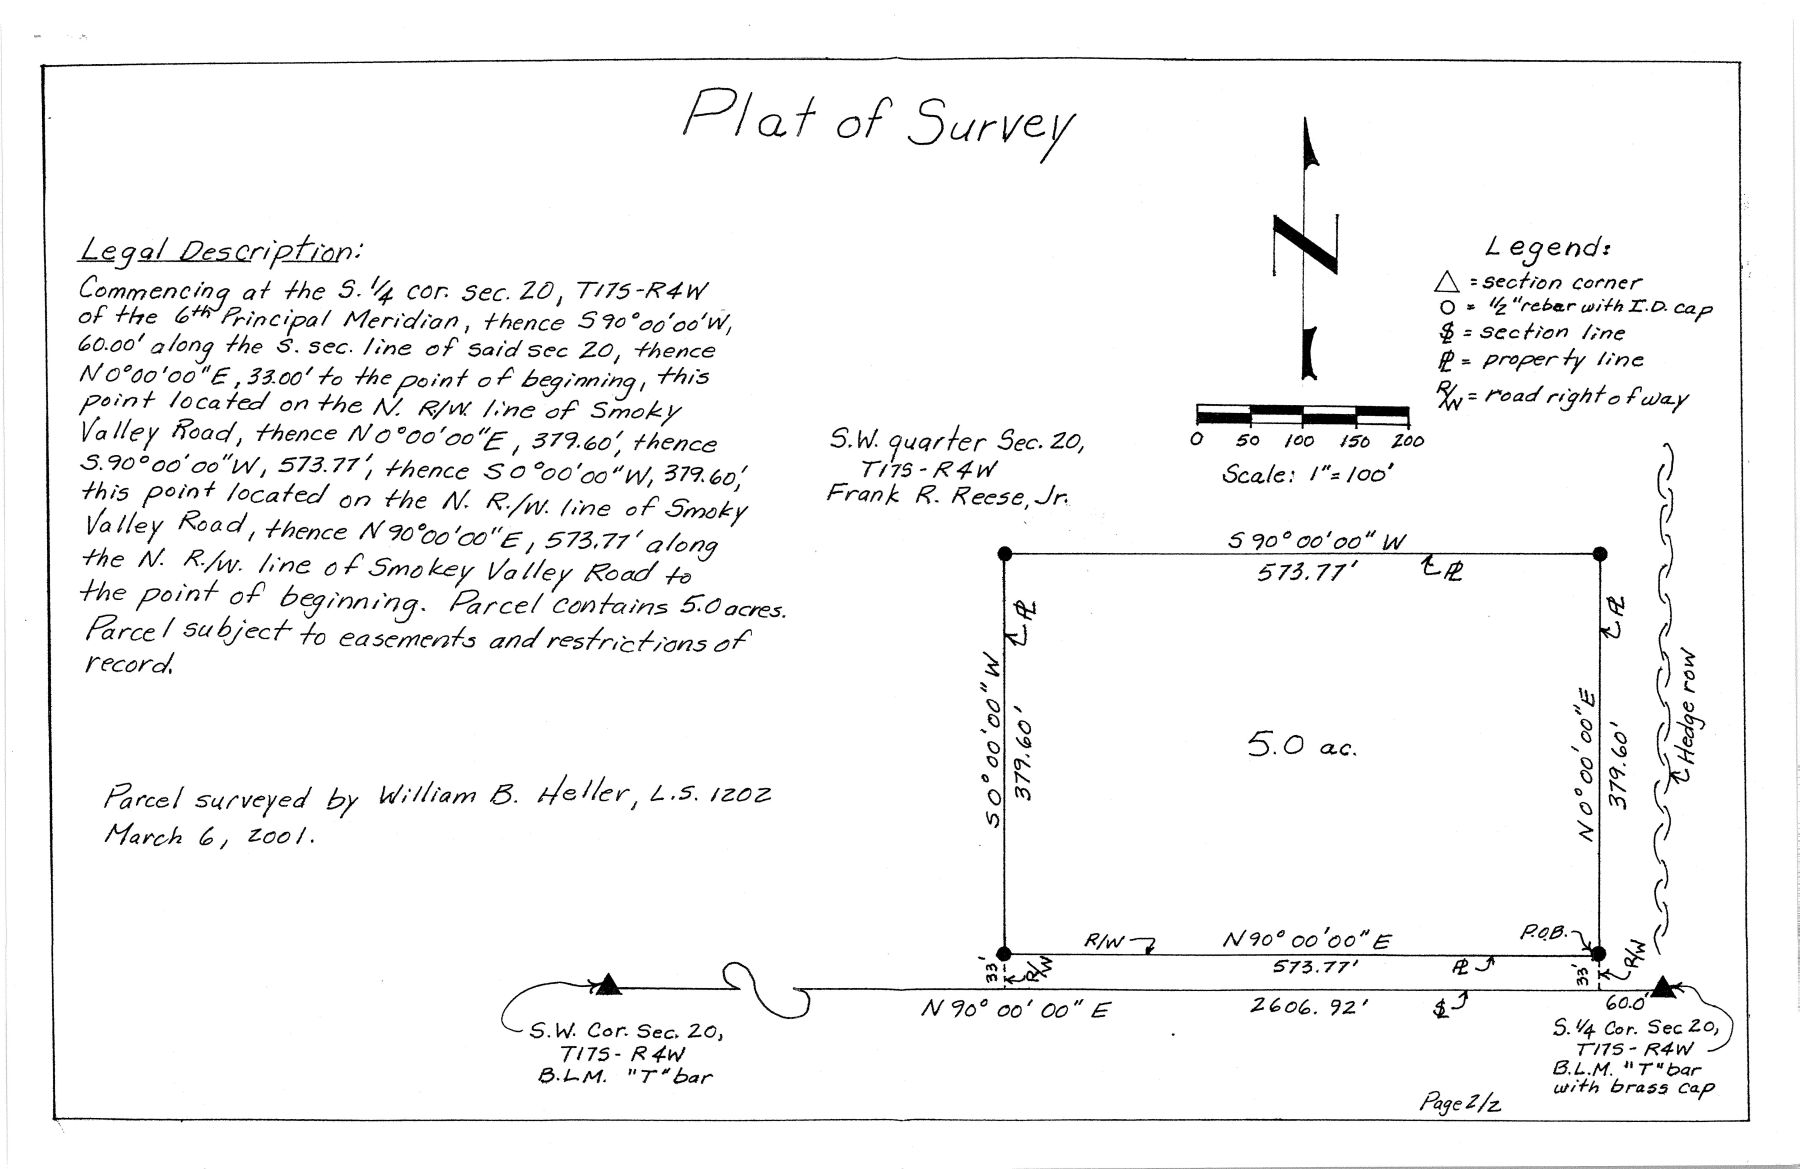 Plat of Survey
Legal Description:
Commencing at the S. 1/4 cor. sec. 20, T17S-R4W
of the 6th Principal Meridian, thence S90°00'00'W,
60.00' along the S. sec. line of said sec 20, thence
N0°00'00"E, 33.00' to the point of beginning, this
point located on the N. R/W. line of Smoky
Valley Road, thence N0°00'00"E, 379.60', thence
S.90°00'00"W, 573.77', thence S0°00'00"W, 379.60',
this point located on the N. R./W. line of Smoky
Valley Road, thence N90°00'00"E, 573.77' along
the N. R./W. line of Smokey Valley Road to
the point of beginning. Parcel contains 5.0 acres.
Parcel subject to easements and restrictions of
record.
Parcel surveyed by William B. Heller, L.S. 1202
March 6, 2001.
S.W. quarter Sec. 20,
T17S-R4W
Frank R. Reese, Jr.
N
0 50 100 150 200
Scale: 1"=100'
Legend:
△ = section corner
O = 1/2" rebar with I.D. cap
SL = section line
PL = property line
R/W = road right of way
S 90° 00' 00" W
573.77'
PL
PL
PL
S 0° 00' 00" W
379.60'
5.0 ac.
N 0° 00' 00" E
379.60'
Hedge row
R/W
N90° 00' 00" E
P.O.B.
573.77'
PL
33'
R/W
33'
R/W
N 90° 00' 00" E
2606.92'
SL
60.0'
S.W. Cor. Sec. 20,
T17S-R4W
B.L.M. "T" bar
S. 1/4 Cor. Sec 20,
T17S-R4W
B.L.M. "T" bar
with brass cap
Page 2/2